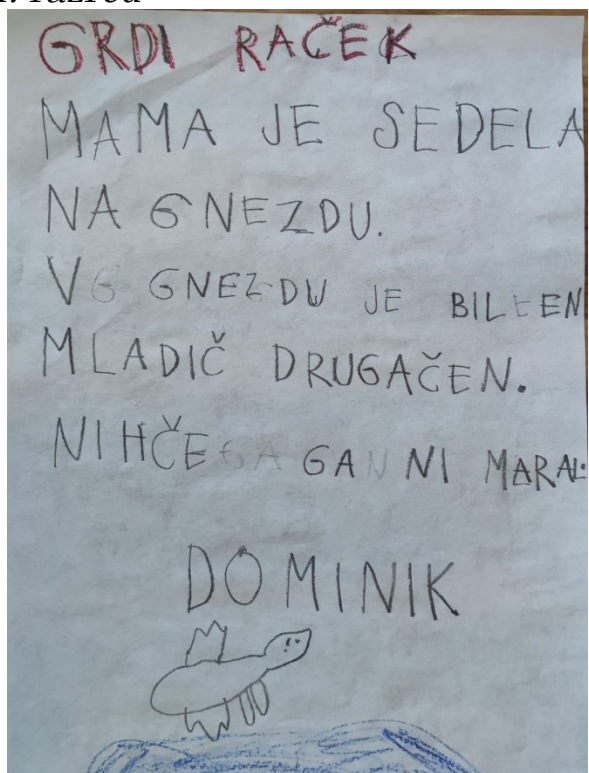 GRDI RAČEK
MAMA JE SEDELA
NA GNEZDU.
V GNEZDU JE BIL EEN
MLADIČ DRUGAČEN.
NIHČE GA NI MARAL.
DOMINIK